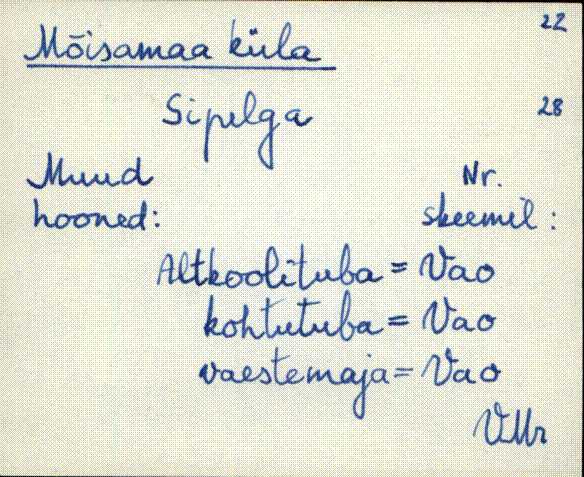 22
Mõisamaa küla
Sipelga 28
Muud Nr.
hooned: skeemil:
Altkoolituba = Vao
kohtutuba = Vao
vaestemaja = Vao
VMr